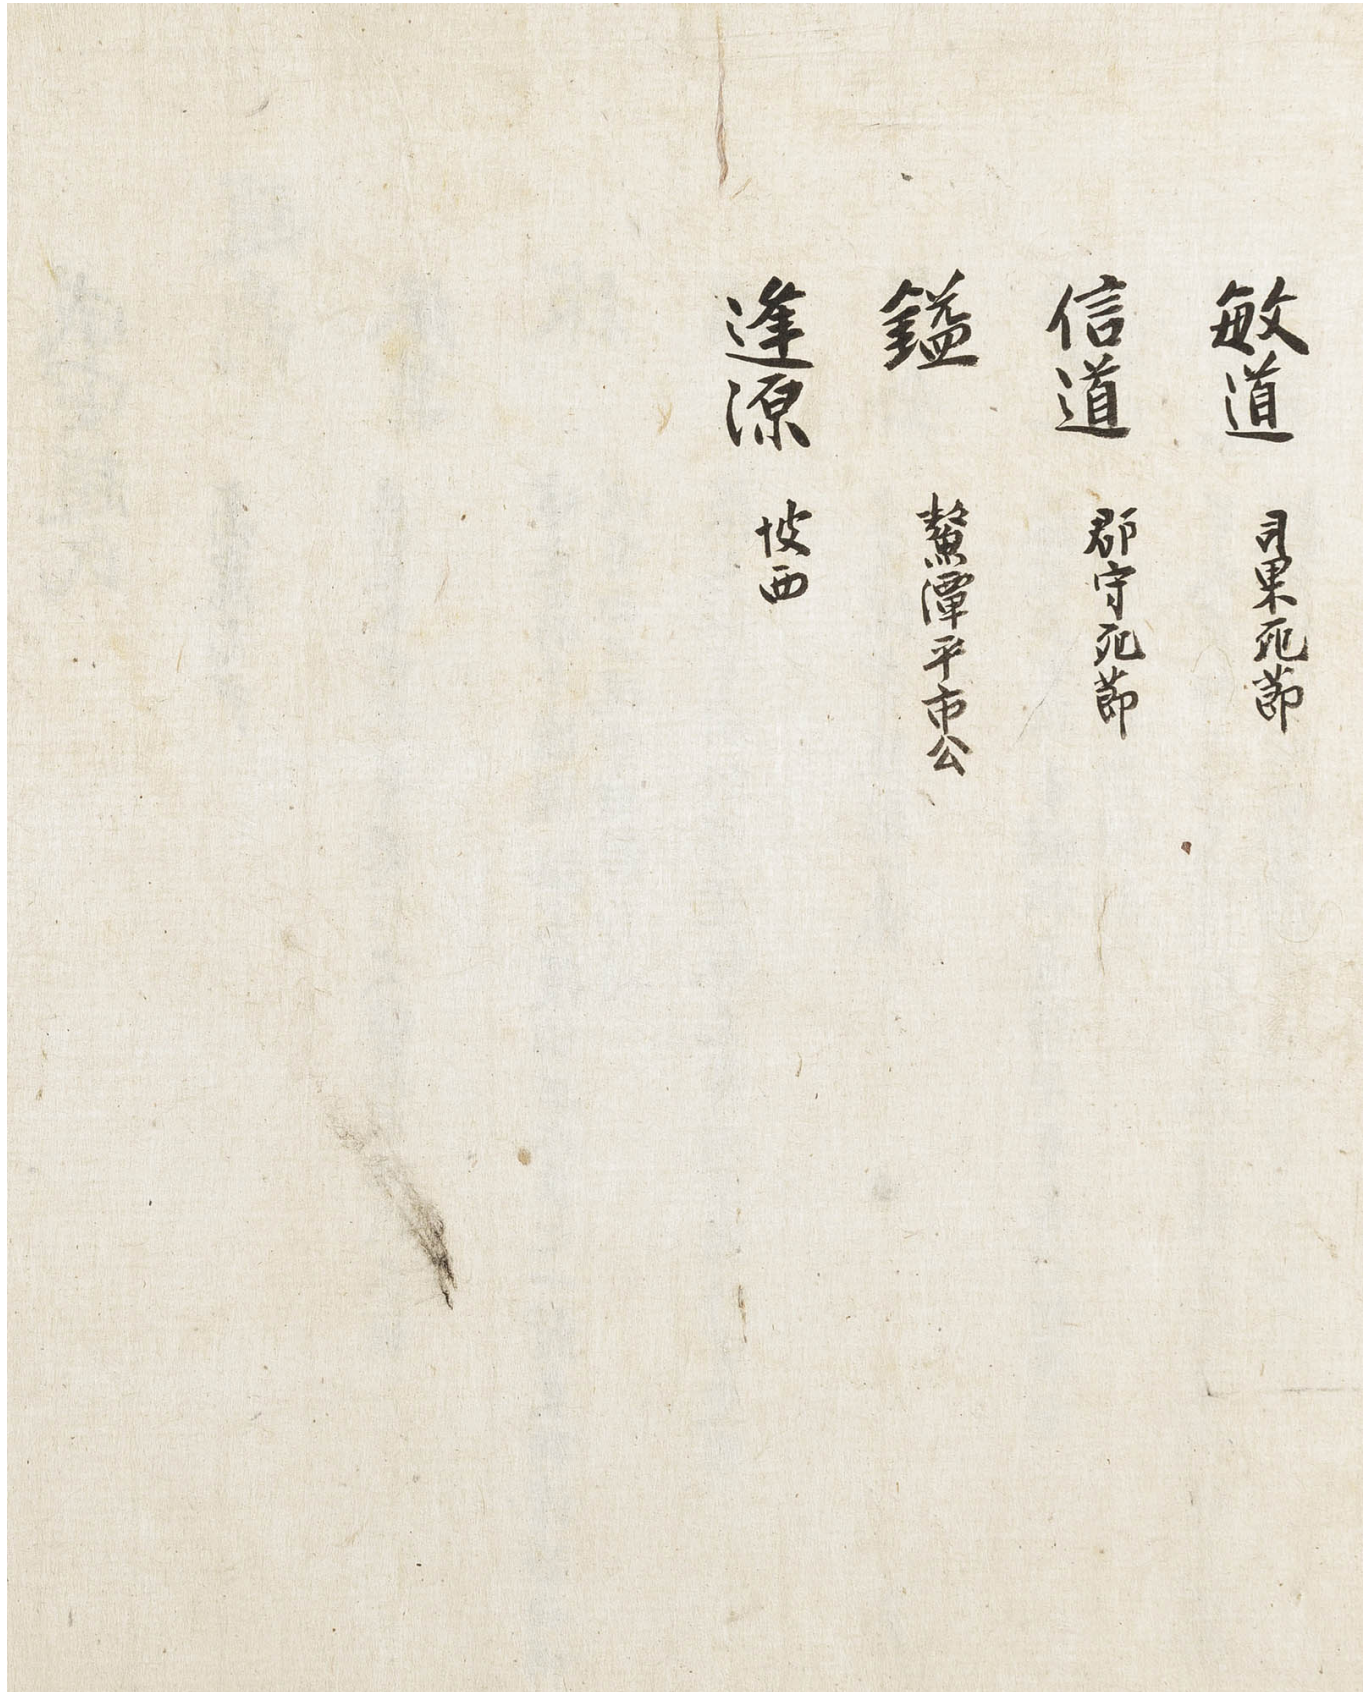 敏道 司果死節
信道 郡守死節
鎰 鰲潭平市公
逢源 坡西